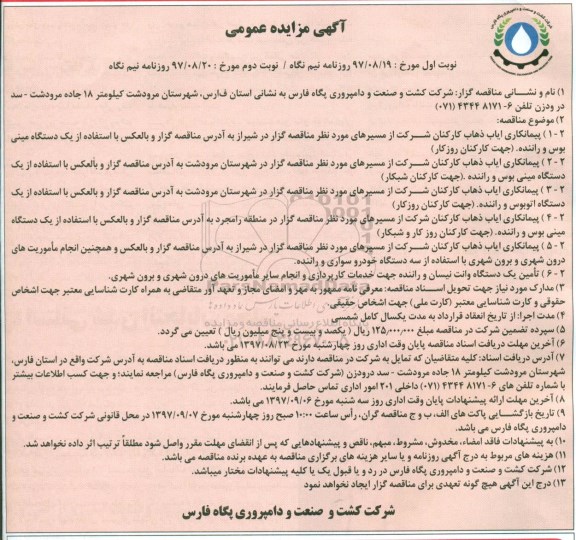 آگهی مزایده عمومی
نوبت اول مورخ : ۹۷/۰۸/۱۹ روزنامه نیم نگاه / نوبت دوم مورخ : ۹۷/۰۸/۲۰ روزنامه نیم نگاه
۱) نام و نشانی مناقصه گزار: شرکت کشت و صنعت و دامپروری پگاه فارس به نشانی استان فارس، شهرستان مرودشت کیلومتر ۱۸ جاده مرودشت - سد
در ودزن تلفن ۶- ۸۱۷۱ ۴۳۴۴ (۰۷۱)
۲) موضوع مناقصه:
۱-۲ ) پیمانکاری ایاب ذهاب کارکنان شرکت از مسیرهای مورد نظر مناقصه گزار در شیراز به آدرس مناقصه گزار و بالعکس با استفاده از یک دستگاه مینی
بوس و راننده. (جهت کارکنان روزکار)
۲-۲ ) پیمانکاری ایاب ذهاب کارکنان شرکت از مسیرهای مورد نظر مناقصه گزار در شهرستان مرودشت به آدرس مناقصه گزار و بالعکس با استفاده از یک
دستگاه مینی بوس و راننده .(جهت کارکنان شبکار)
۳-۲ ) پیمانکاری ایاب ذهاب کارکنان شرکت از مسیرهای مورد نظر مناقصه گزار در شهرستان مرودشت به آدرس مناقصه گزار و بالعکس با استفاده از یک
دستگاه اتوبوس و راننده. (جهت کارکنان روزکار)
۴-۲ ) پیمانکاری ایاب ذهاب کارکنان شرکت از مسیرهای مورد نظر مناقصه گزار در منطقه رامجرد به آدرس مناقصه گزار و بالعکس با استفاده از یک دستگاه
مینی بوس و راننده. (جهت کارکنان روز کار و شبکار)
۵-۲ ) پیمانکاری ایاب ذهاب کارکنان شرکت از مسیرهای مورد نظر مناقصه گزار در شیراز به آدرس مناقصه گزار و بالعکس و همچنین انجام مأموریت های
درون شهری و برون شهری با استفاده از سه دستگاه خودرو سواری و راننده.
۶-۲ ) تأمین یک دستگاه وانت نیسان و راننده جهت خدمات کارپردازی و انجام سایر مأموریت های درون شهری و برون شهری.
۳) مدارک مورد نیاز جهت تحویل اسناد مناقصه: معرفی نامه معتبر ممهور به مهر و امضای مجاز و تعهد آور متقاضی به همراه کارت شناسایی معتبر جهت اشخاص
حقوقی و کارت شناسایی معتبر (کارت ملی) جهت اشخاص حقیقی.
۴) مدت اجرا: از تاریخ انعقاد قرارداد به مدت یکسال کامل شمسی
۵) سپرده تضمین شرکت در مناقصه مبلغ ۱۲۵,۰۰۰,۰۰۰ ریال ( یکصد و بیست و پنج میلیون ریال ) تعیین می گردد.
۶) آخرین مهلت دریافت اسناد مناقصه پایان وقت اداری روز چهارشنبه مورخ ۱۳۹۷/۰۸/۳۰ می باشد.
۷) آدرس دریافت اسناد: کلیه متقاضیان که تمایل به شرکت در مناقصه دارند می توانند به منظور دریافت اسناد مناقصه به آدرس شرکت واقع در استان فارس،
شهرستان مرودشت کیلومتر ۱۸ جاده مرودشت - سد درودزن (شرکت کشت و صنعت و دامپروری پگاه فارس) مراجعه نمایند؛ و جهت کسب اطلاعات بیشتر
با شماره تلفن های ۶- ۸۱۷۱ ۴۳۴۴ (۰۷۱) داخلی ۲۰۱ امور اداری تماس حاصل فرمایند.
۸) آخرین مهلت ارائه پیشنهادات پایان وقت اداری روز سه شنبه مورخ ۱۳۹۷/۰۹/۰۶ می باشد.
۹) تاریخ بازگشایی پاکت های الف، ب و ج مناقصه گران، رأس ساعت ۱۰:۰۰ صبح روز چهارشنبه مورخ ۱۳۹۷/۰۹/۰۷ در محل قانونی شرکت کشت و صنعت و
دامپروری پگاه فارس می باشد.
۱۰) به پیشنهادات فاقد امضاء، مخدوش، مشروط، مبهم، ناقص و پیشنهادهایی که پس از انقضای مهلت مقرر واصل شود مطلقاً ترتیب اثر داده نخواهد شد.
۱۱) هزینه های مربوط به درج آگهی روزنامه و یا سایر هزینه های برگزاری مناقصه به عهده برنده مناقصه می باشد.
۱۲) شرکت کشت و صنعت و دامپروری پگاه فارس در رد و یا قبول یک یا کلیه پیشنهادات مختار میباشد.
۱۳) درج این آگهی هیچ گونه تعهدی برای مناقصه گزار ایجاد نخواهد نمود
شرکت کشت و صنعت و دامپروری پگاه فارس